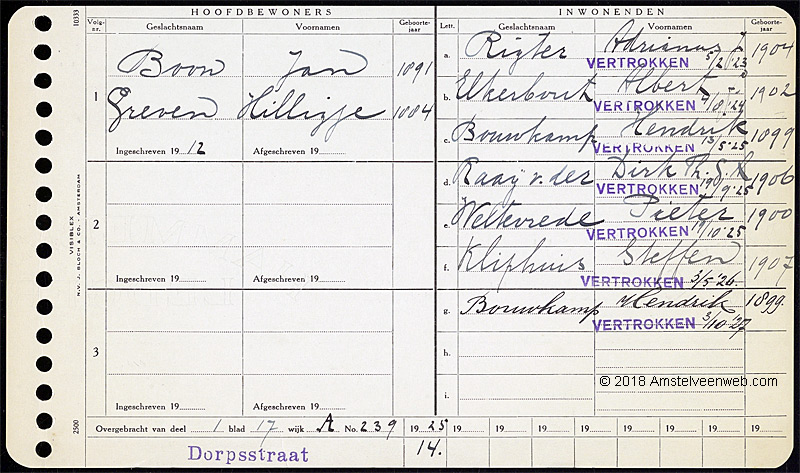 HOOFDBEWONERS
INWONENDEN
10333
Volg-nr.
Geslachtsnaam
Voornamen
Geboorte-jaar
Lett.
Geslachtsnaam
Voornamen
Geboorte-jaar
1
Boon Jan 1891
Greven Hilligje 1884
Ingeschreven 19 12
Afgeschreven 19
2
Ingeschreven 19
Afgeschreven 19
3
Ingeschreven 19
Afgeschreven 19
a. Rigter Adrianus J 1904
VERTROKKEN 5/2 '23
b. Elkerbout Albert 1902
VERTROKKEN /8 '24
c. Bouwkamp Hendrik 1899
VERTROKKEN 13/5-'25
d. Raaÿ v. der Dirk Th. G. A 1906
VERTROKKEN 19/9-'25
e. Weltevrede Pieter 1900
VERTROKKEN 19/10-'25
f. Kliphuis Steffen 1907
VERTROKKEN 3/5 '26.
g. Bouwkamp Hendrik 1899
VERTROKKEN 3/10-'27
h.
i.
VISIBLEX
N.V. J. BLOCH & CO. - AMSTERDAM
2500
© 2018 Amstelveenweb.com
Overgebracht van deel 1 blad 17 wijk A No. 239
19 25 19 19 19 19 19 19 19 19
Dorpsstraat 14.